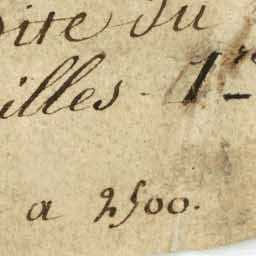 oite du
illes 1re
a 2500.